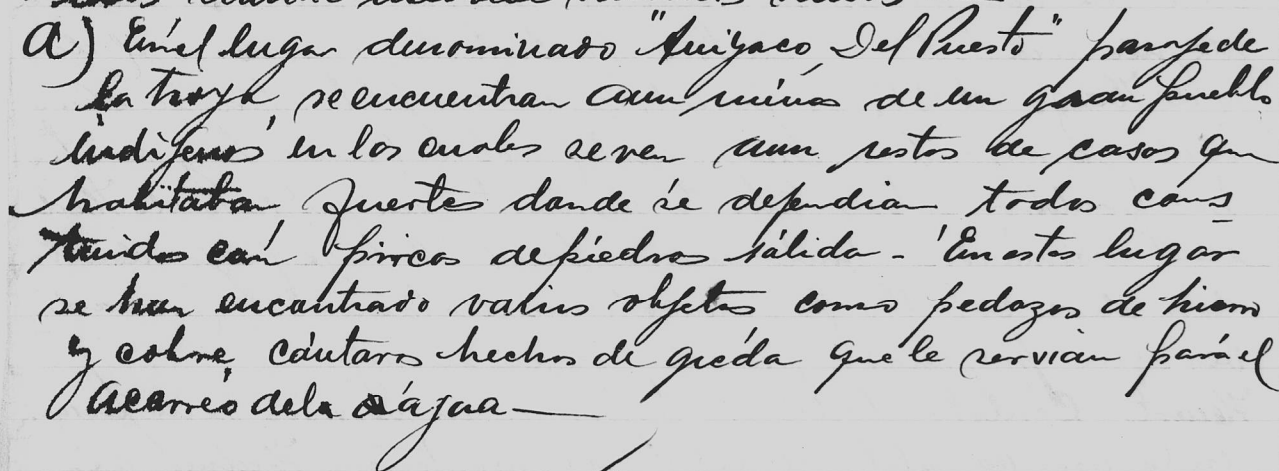 a) En el lugar denominado "Aniyaco Del Puesto" paraje de
la troya, se encuentran aun ruinas de un gran pueblo
indijenas en los cuales se ven aun restos de casas que
habitaban, fuertes donde se defendian todos cons
truidos con pircas de piedras sálida - En estos lugar
se han encontrado varios objetos como pedazos de hierro
y cobre, cántaros hechos de greda que le servian para el
acarreo de la água